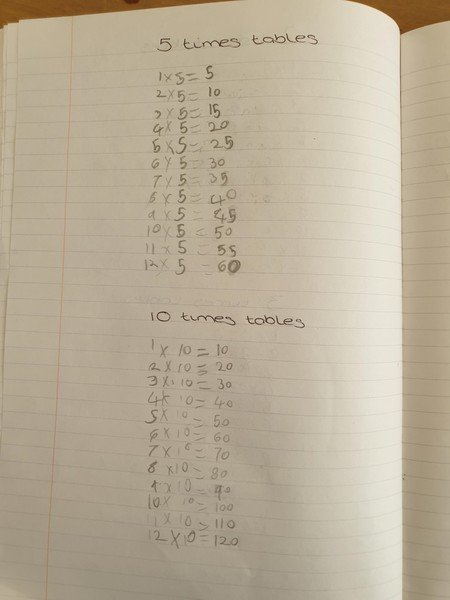 5 times tables
1 x 5 = 5
2 x 5 = 10
3 x 5 = 15
4 x 5 = 20
5 x 5 = 25
6 x 5 = 30
7 x 5 = 35
8 x 5 = 40
9 x 5 = 45
10 x 5 = 50
11 x 5 = 55
12 x 5 = 60
10 times tables
1 x 10 = 10
2 x 10 = 20
3 x 10 = 30
4 x 10 = 40
5 x 10 = 50
6 x 10 = 60
7 x 10 = 70
8 x 10 = 80
9 x 10 = 90
10 x 10 = 100
11 x 10 = 110
12 x 10 = 120